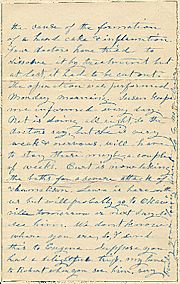 the cause of the formation
of a hard cake & inflammation
Four doctors have tried to
dissolve it by treatment but
at last it had to be cut out.
The operation was performed
Monday morning. Susan
me informed every day
Pet is doing all right so the
doctors say, but she is very
weak & nervous, will have
to stay there maybe a couple
of weeks. Curt is now taking
the baths for a severe attack of
rheumatism. Lewis is here with
us but will probably go to
ville tomorrow or next day to
see him. We don't know
where you are, so I send
this to Eugene. Suppose you
had a delightful trip. My love
to Robert when you see him, very